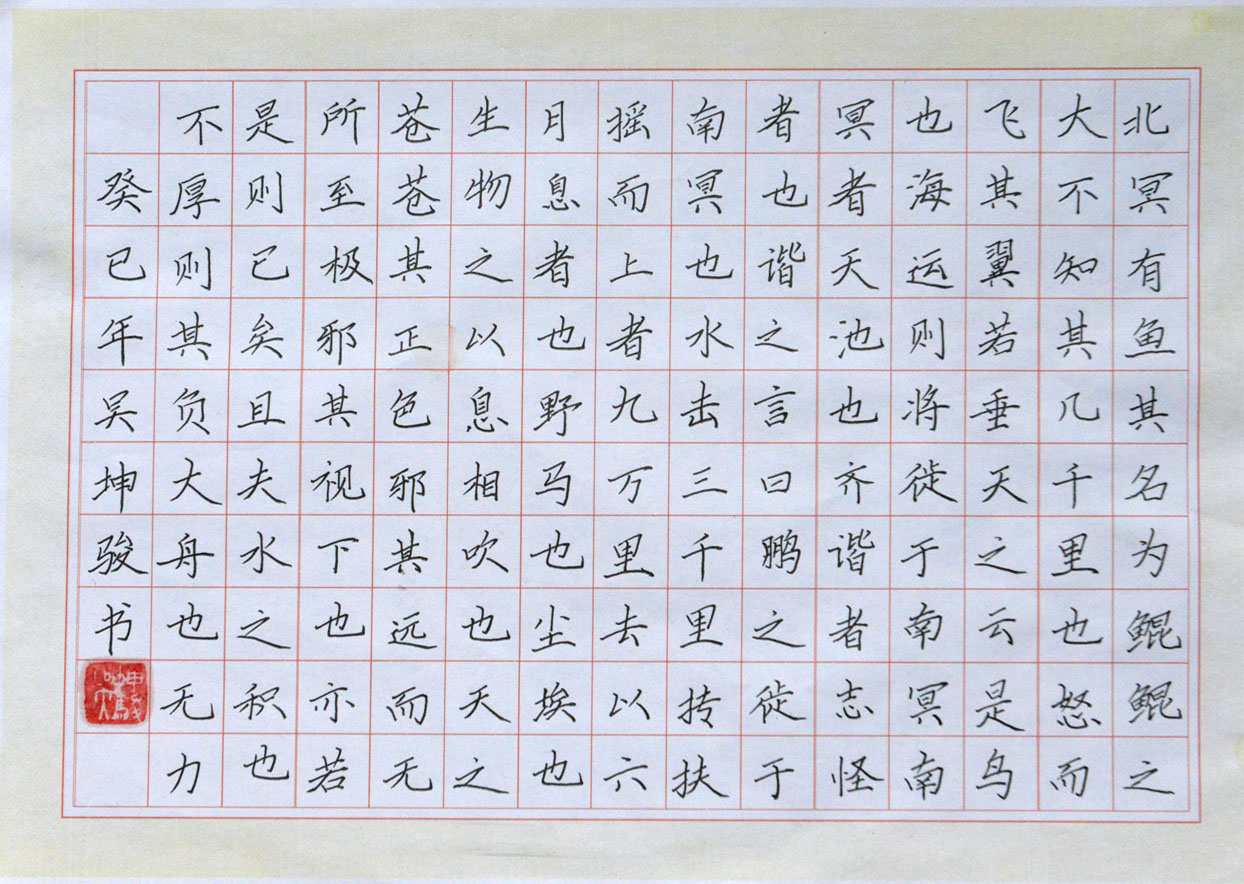 北冥有鱼其名为鲲鲲之
大不知其几千里也怒而
飞其翼若垂天之云是鸟
也海运则将徙于南冥南
冥者天池也齐谐者志怪
者也谐之言曰鹏之徙于
南冥也水击三千里抟扶
摇而上者九万里去以六
月息者也野马也尘埃也
生物之以息相吹也天之
苍苍其正色邪其远而无
所至极邪其视下也亦若
是则已矣且夫水之积也
不厚则其负大舟也无力
癸巳年吴坤骏书